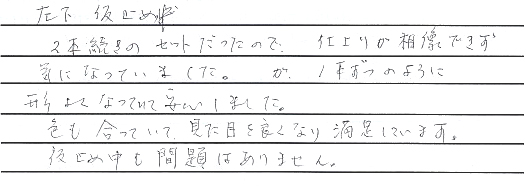 左下 仮止め中
2本続きのセットだったので、 仕上りが想像できず
気になっていました。 が、1本ずつのように
形よくなっていて安心しました。
色も合っていて、見た目も良くなり満足しています。
仮止め中も問題はありません。